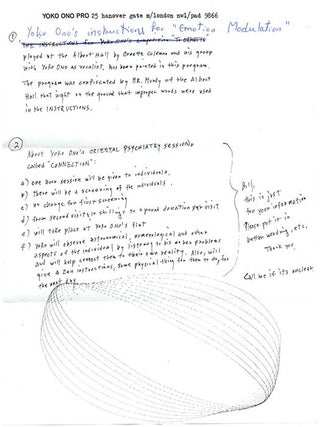 YOKO ONO PRO 25 hanover gate m/london nw1/pad 9866
① Yoko Ono's instructions for "Emotion Modulation"
played at the Albert Hall by Ornette Coleman and his group
with Yoko Ono as vocalist, has been printed in this program.
The program was confiscated by MR. Mundy of the Albert
Hall that night on the ground that improper words were used
in the INSTRUCTIONS.
② About Yoko Ono's ORIENTAL PSYCHIATRY SESSION,
called "CONNECTION":
a) one hour session will be given to individuals.
b) there will be a screening of the individuals.
c) no charge for first screening
d) from second visit 10 shillings to a pound donation per visit
e) will take place at Yoko Ono's flat
f) Yoko will observe astronomical, numerological and other
aspects of the individual by listening to his or her problems
and will help connect them to their own reality. Also, will
give a Zen instructions, some physical thing for them to do, for
the next day.
Bill,
this is just
for your information
Please put it in
better wording, etc.
Thank you,
Call me if its unclear